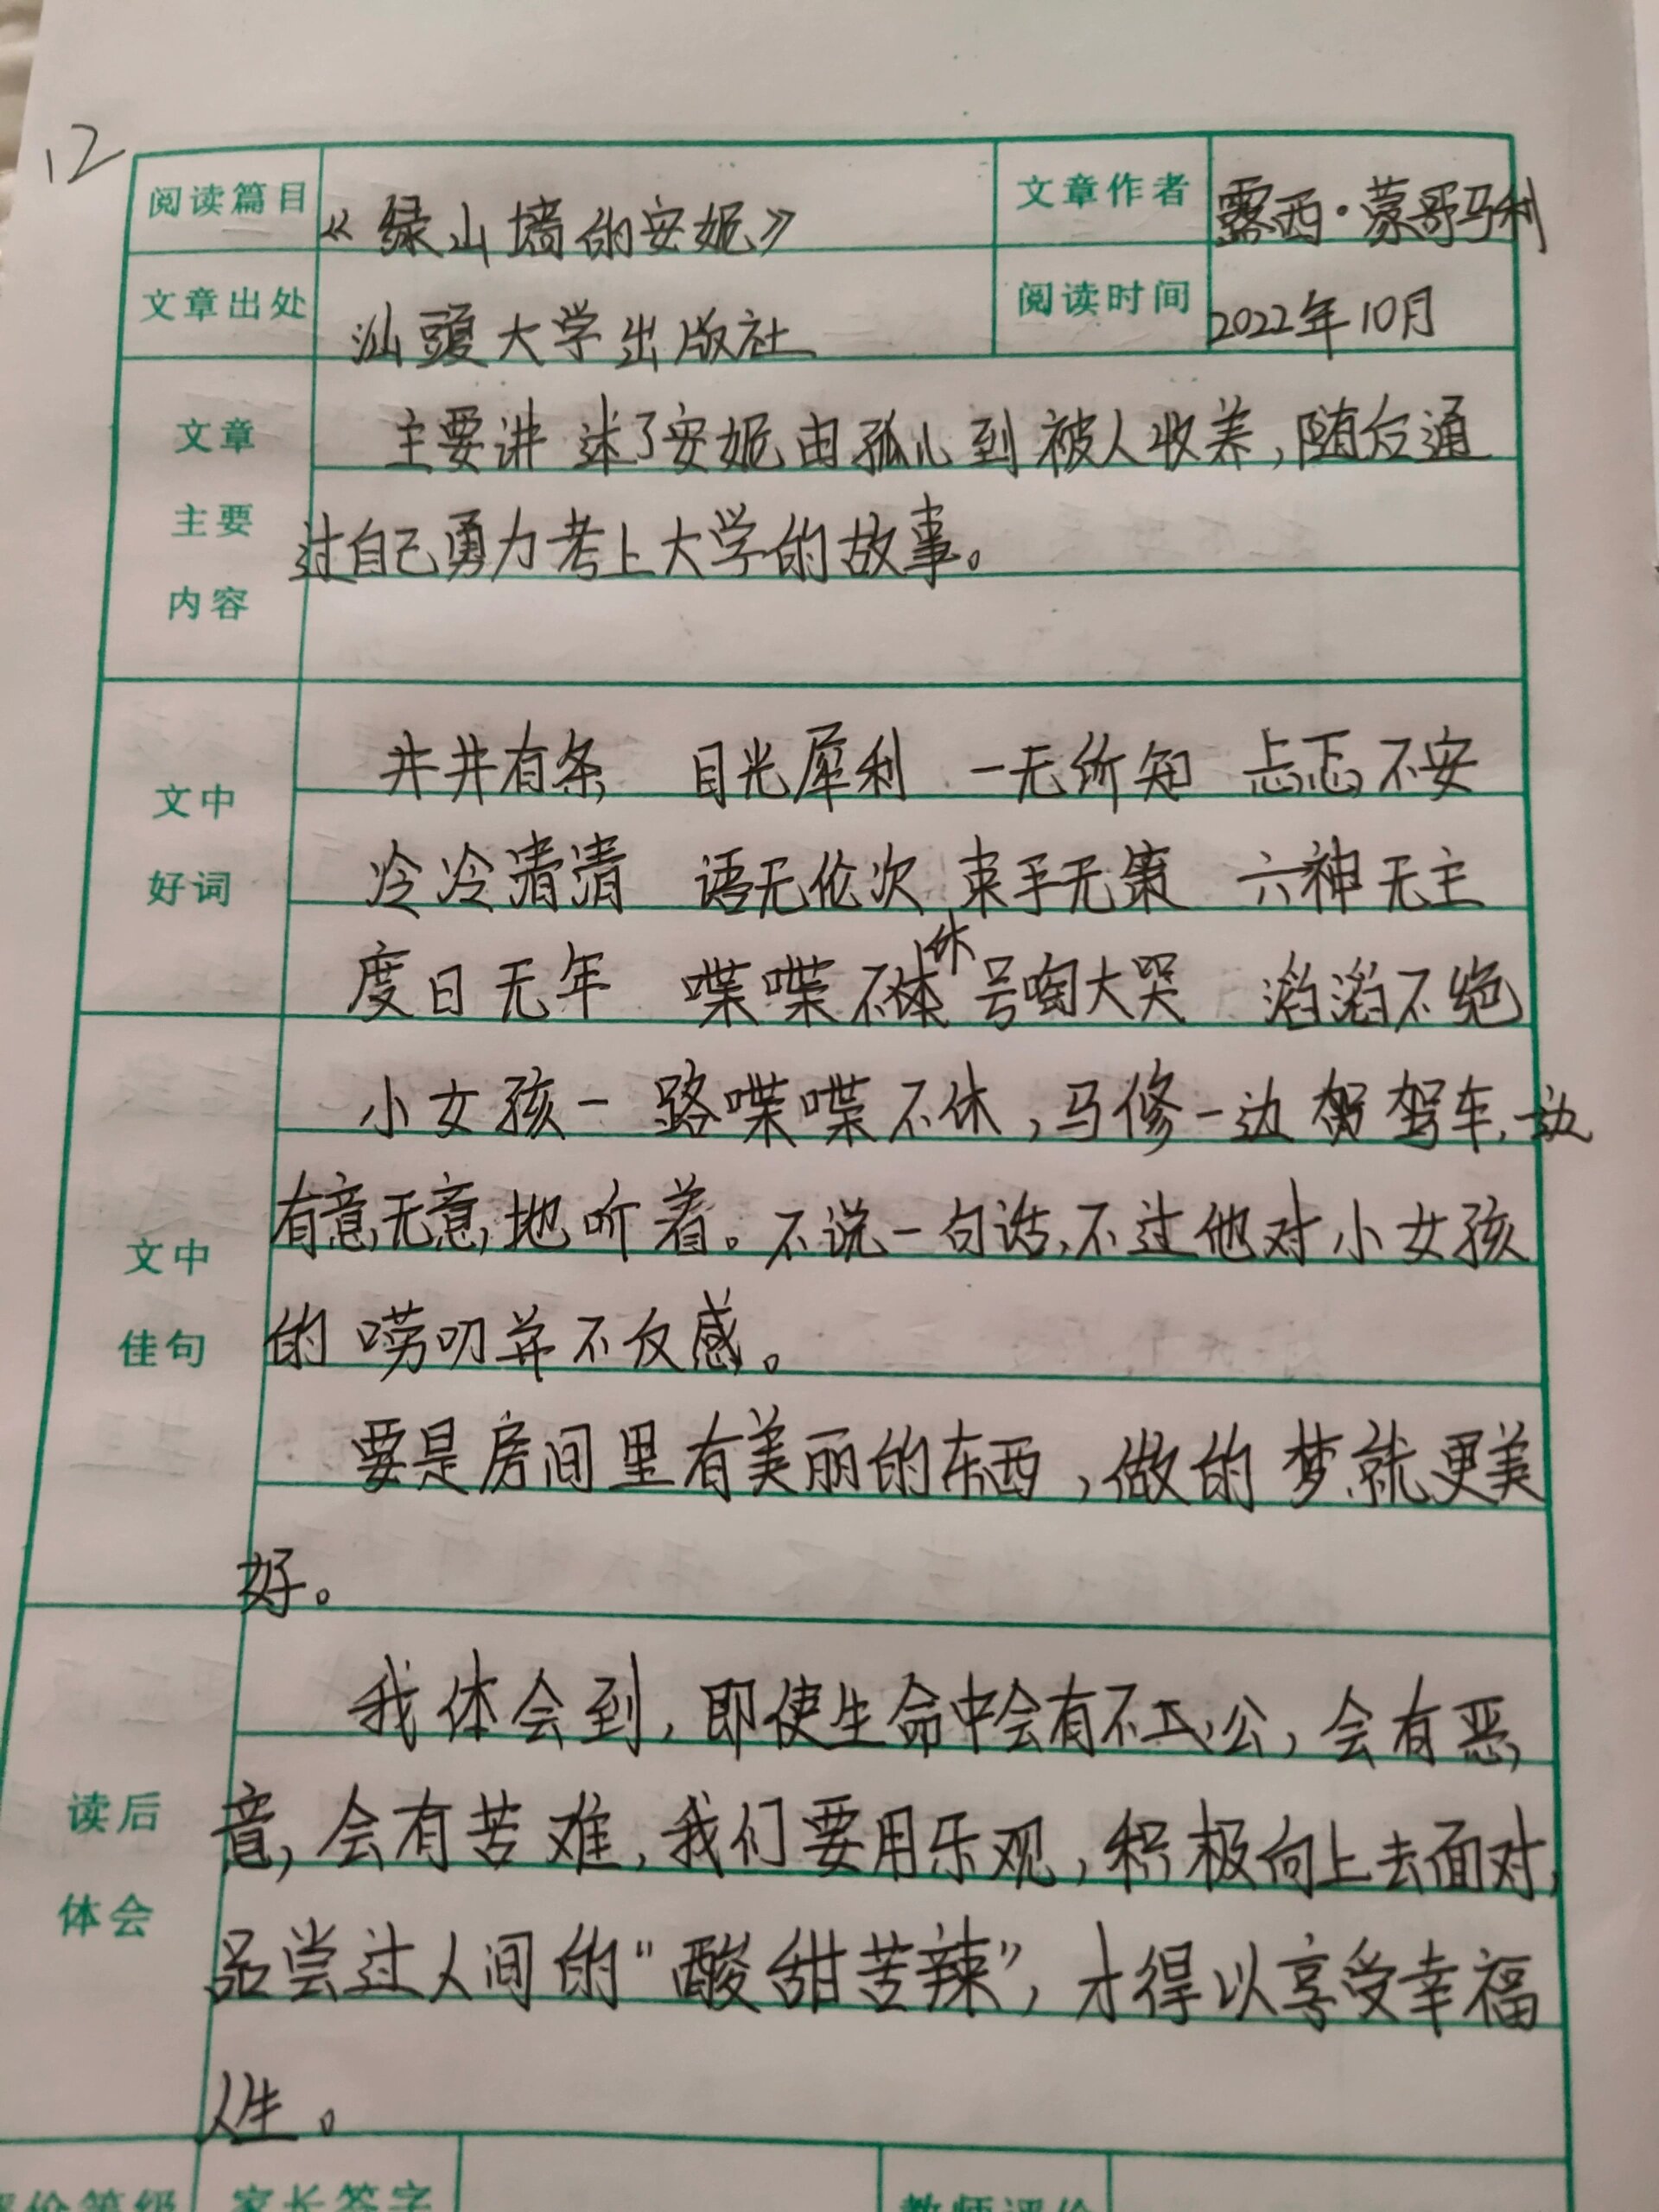 12
阅读篇目 《绿山墙的安妮》 文章作者 露西·蒙哥马利
文章出处 汕頭大学出版社 阅读时间 2022年10月
文章主要内容
主要讲述了安妮由孤儿到被人收养,随后通
过自己勇力考上大学的故事。
文中好词
井井有条 目光犀利 一无所知 忐忑不安
冷冷清清 语无伦次 束手无策 六神无主
度日无年 喋喋不休 号啕大哭 滔滔不绝
文中佳句
小女孩一路喋喋不休,马修一边驾车,一边
有意无意地听着。不说一句话,不过他对小女孩
的唠叨并不反感。
要是房间里有美丽的东西,做的梦就更美
好。
读后体会
我体会到,即使生命中会有不公,会有恶
意,会有苦难,我们要用乐观,积极向上去面对,
品尝过人间的“酸甜苦辣”,才得以享受幸福
人生。
评价等级 家长签字 教师评价